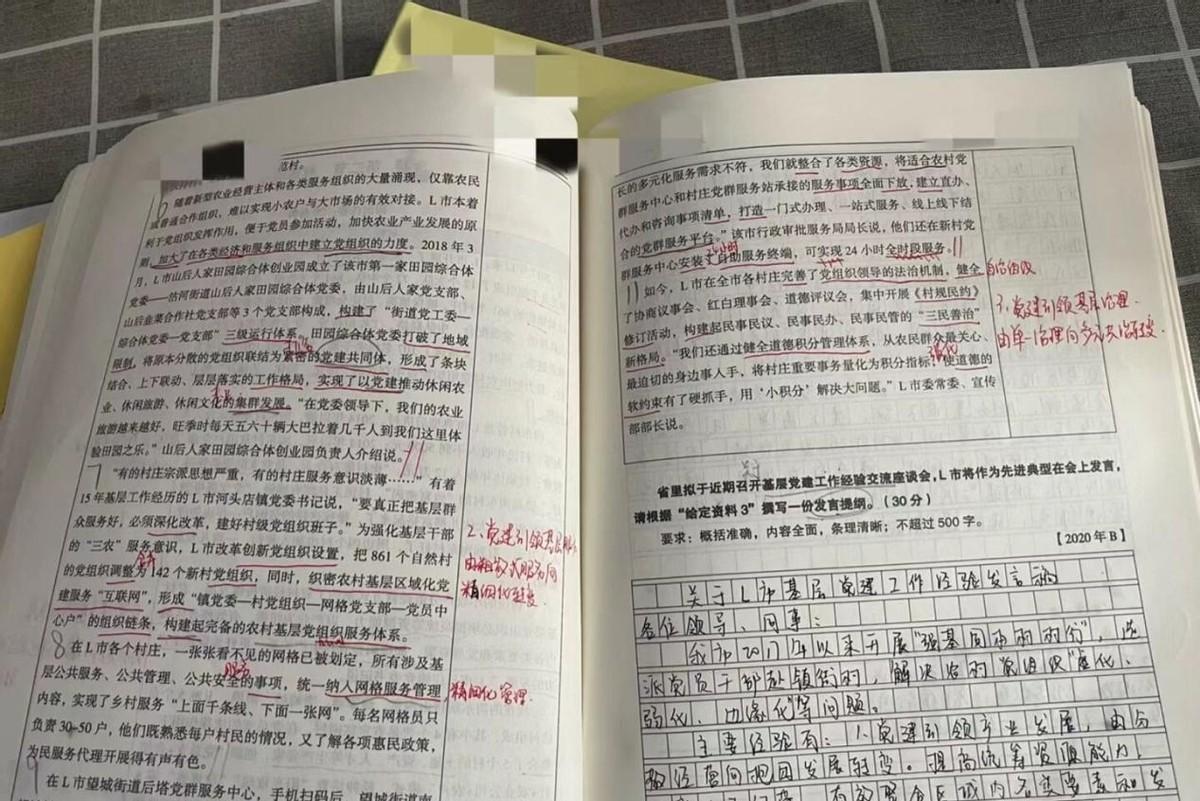 范村。
随着新型农业经营主体和各类服务组织的大量涌现，仅靠农民
或普通合作组织，难以实现小农户与大市场的有效对接。L市本着
利于党组织发挥作用，便于党员参加活动，加快农业产业发展的原
则，加大了在各类经济和服务组织中建立党组织的力度。2018年3
月，L市山后人家田园综合体创业园成立了该市第一家田园综合体
党委——沽河街道山后人家田园综合体党委，由山后人家党支部、
山后韭菜合作社党支部等3个党支部构成，构建了“街道党工委—
综合体党委—党支部”三级运行体系。田园综合体党委打破了地域
限制，将原本分散的党组织联结为紧密的党建共同体，形成了条块
结合、上下联动、层层落实的工作格局，实现了以党建推动休闲农
业、休闲旅游、休闲文化的集群发展。“在党委领导下，我们的农业
旅游越来越好，旺季时每天五六十辆大巴拉着几千人到我们这里体
验田园之乐。”山后人家田园综合体创业园负责人介绍说。
7
“有的村庄宗派思想严重，有的村庄服务意识淡薄……”有着
15年基层工作经历的L市河头店镇党委书记说，“要真正把基层群
众服务好，必须深化改革，建好村级党组织班子。”为强化基层干部
的“三农”服务意识，L市改革创新党组织设置，把861个自然村
的党组织调整为142个新村党组织，同时，织密农村基层区域化党
建服务“互联网”，形成“镇党委—村党组织—网格党支部—党员中
心户”的组织链条，构建起完备的农村基层党组织服务体系。
2、党建引领基层服务
由粗放式服务向
精细化转变
8
在L市各个村庄，一张张看不见的网格已被划定，所有涉及基
层公共服务、公共管理、公共安全的事项，统一纳入网格服务管理
服务
精细化管理
内容，实现了乡村服务“上面千条线、下面一张网”。每名网格员只
负责30-50户，他们既熟悉每户村民的情况，又了解各项惠民政策，
为民服务代理开展得有声有色。
9
在L市望城街道后塔党群服务中心，手机扫码后，望城街道南
长的多元化服务需求不符，我们就整合了各类资源，将适合农村党
群服务中心和村庄党群服务站承接的服务事项全面下放，建立直办、
代办和咨询事项清单，打造一门式办理、一站式服务、线上线下结
合的党群服务平台。”该市行政审批服务局局长说，他们还在新村党
群服务中心安装了自助服务终端，可实现24小时全时段服务。
如今，L市在全市各村庄完善了党组织领导的法治机制，健全
了协商议事会、红白理事会、道德评议会，集中开展《村规民约》
修订活动，构建起民事民议、民事民办、民事民管的“三民善治”
新格局。“我们还通过健全道德积分管理体系，从农民群众最关心、
最迫切的身边事入手，将村庄重要事务量化为积分指标，使道德的
强化
软约束有了硬抓手，用‘小积分’解决大问题。”L市委常委、宣传
部部长说。
3、党建引领基层治理
由单一治理向多元共治转变
省里拟于近期召开基层党建工作经验交流座谈会，L市将作为先进典型在会上发言，
请根据“给定资料3”撰写一份发言提纲。（30分）
要求：概括准确，内容全面，条理清晰；不超过500字。
【2020年B】
关于L市基层党建工作经验发言稿
各位领导、同事：
我市2017年以来开展“强基固本
派党员干部赴镇街村，解决农村党组织“虚化、
弱化、边缘化”等问题。
主要经验有：1、党建引领产业发展，由分
散经营向抱团发展转变。提高统筹资源能力，